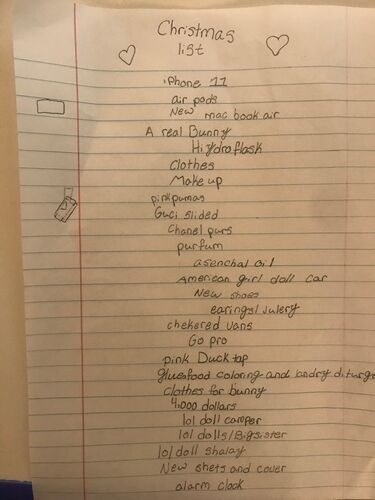 Christmas
list
iPhone 11
air pods
New mac book air
A real Bunny
Hydroflask
clothes
Make up
pink pumas
Guci slided
Chanel purs
purfum
asenchal oil
American girl doll car
New shoes
earings/julery
chekered vans
Go pro
pink Duck tap
glue food coloring and landry diturge
clothes for bunny
4,000 dollars
lol doll camper
lol dolls/Bigsister
lol doll shalay
New shets and cover
alarm clock